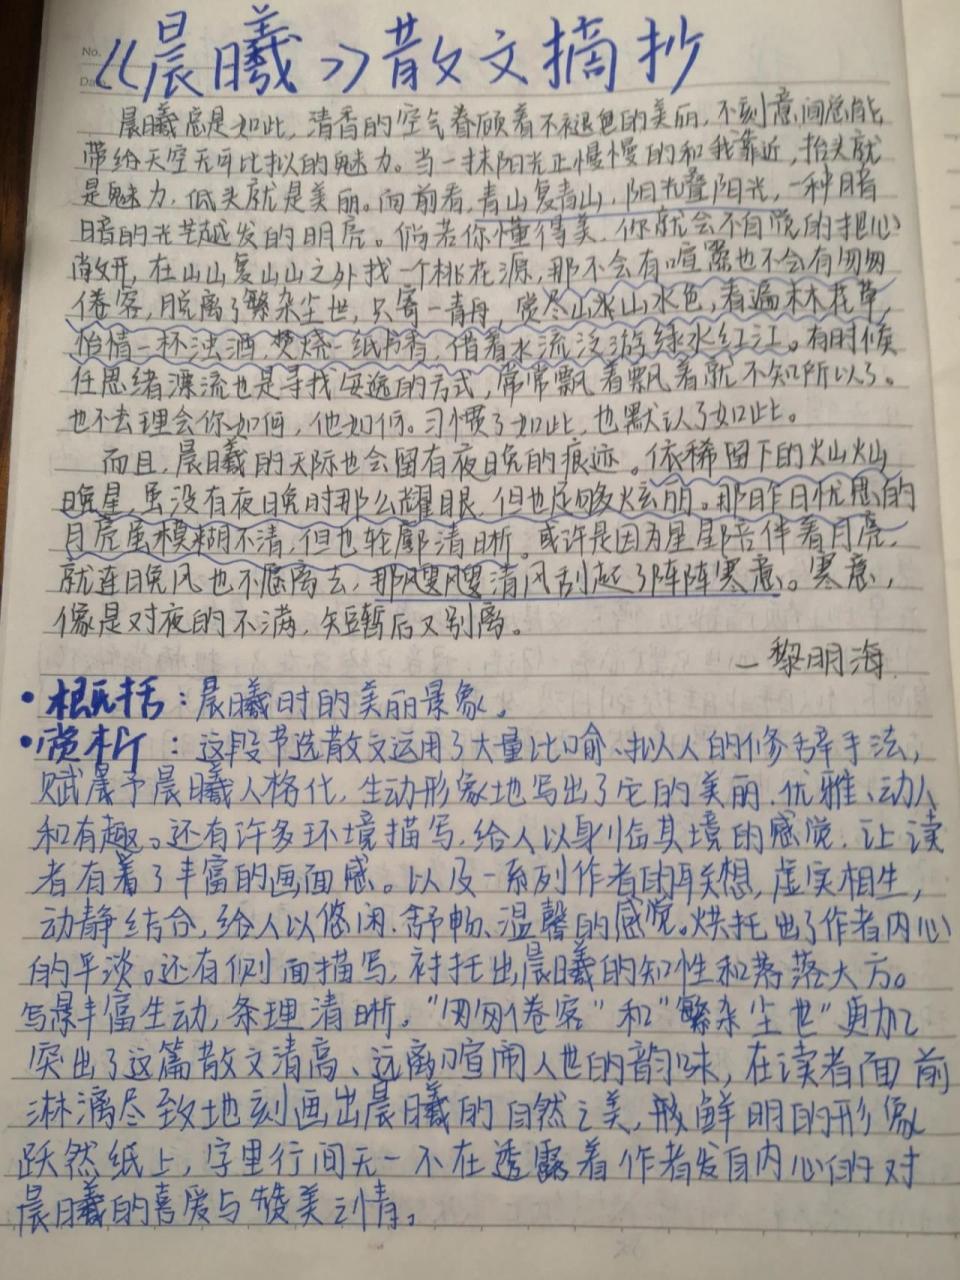 No.
《晨曦》散文摘抄
晨曦总是如此,清香的空气眷顾着不褪色的美丽,不刻意间总能
带给天空无可比拟的魅力。当一抹阳光正慢慢的和我靠近,抬头就
是魅力,低头就是美丽。向前看,青山复青山,阳光叠阳光,一种暗
暗的光芒越发的明亮。倘若你懂得美,你就会不自觉的把心
敞开,在山山复山山之外找一个桃花源,那不会有喧嚣也不会有匆匆
倦客,脱离了繁杂尘世,只寄一青舟,赏尽山水山水色,看遍林林花草,
怡情一杯浊酒,焚烧一纸书香,借着水流泛游绿水红江。有时候
任思绪漂流也是寻找安逸的方式,常常飘着飘着就不知所以了。
也不去理会你如何,他如何。习惯了如此,也默认了如此。
而且,晨曦的天际也会留有夜晚的痕迹。依稀留下的灿灿
晚星,虽没有夜晚时那么耀眼,但也足够炫丽。那昨日忧思的
月亮虽模糊不清,但也轮廓清晰。或许是因为星星陪伴着月亮,
就连晚风也不愿离去,那飕飕清风刮起了阵阵寒意。寒意,
像是对夜的不满,短暂后又别离。
—黎明海
•概括:晨曦时的美丽景象。
•赏析:这段节选散文运用了大量比喻、拟人的修辞手法,
赋予晨曦人格化,生动形象地写出了它的美丽、优雅、动人
和有趣。还有许多环境描写,给人以身临其境的感觉,让读
者有着了丰富的画面感。以及一系列作者的联想,虚实相生,
动静结合,给人以悠闲、舒畅、温馨的感觉。烘托出了作者内心
的平淡。还有侧面描写,衬托出晨曦的知性和落落大方。
写景丰富生动,条理清晰。"匆匆倦客"和"繁杂尘世"更加
突出了这篇散文清高、远离喧闹人世的韵味,在读者面前
淋漓尽致地刻画出晨曦的自然之美,鲜明的形象
跃然纸上,字里行间无一不在透露着作者发自内心的对
晨曦的喜爱与赞美之情。